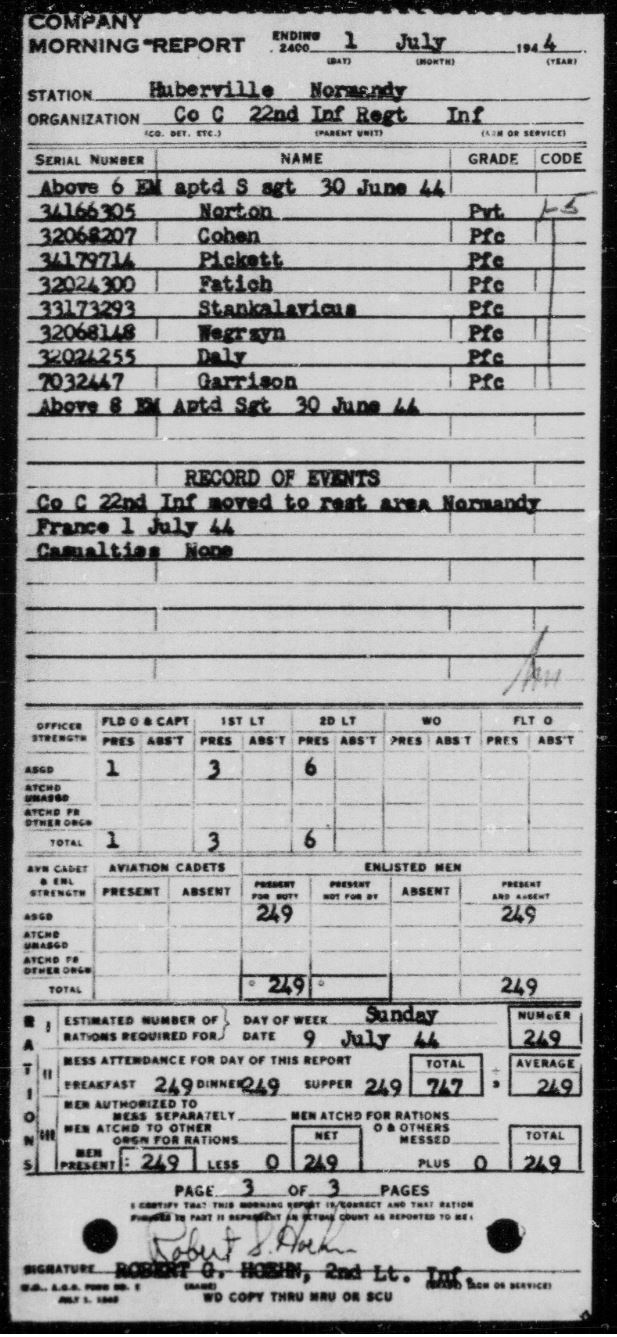 COMPANY
MORNING REPORT ENDING 2400 1 July 1944
(DAY) (MONTH) (YEAR)
STATION Huberville Normandy
ORGANIZATION Co C 22nd Inf Regt Inf
(CO. DET. ETC.) (PARENT UNIT) (ARM OR SERVICE)
SERIAL NUMBER NAME GRADE CODE
Above 6 EM aptd S sgt 30 June 44
34166305 Norton Pvt
32068207 Cohen Pfc
34179714 Pickett Pfc
32024300 Fatich Pfc
33173293 Stankalavicus Pfc
32068148 Wegrzyn Pfc
32024255 Daly Pfc
7032447 Garrison Pfc
Above 8 EM Aptd Sgt 30 June 44
RECORD OF EVENTS
Co C 22nd Inf moved to rest area Normandy
France 1 July 44
Casualties None
OFFICER STRENGTH FLD O & CAPT 1ST LT 2D LT WO FLT O
PRES ABS'T PRES ABS'T PRES ABS'T PRES ABS'T PRES ABS'T
ASGD 1 3 6
ATCHD UNASGD
ATCHD FR OTHER ORGN
TOTAL 1 3 6
AVN CADET & ENL STRENGTH AVIATION CADETS ENLISTED MEN
PRESENT ABSENT PRESENT FOR DUTY PRESENT NOT FOR DY ABSENT PRESENT AND ABSENT
ASGD 249 249
ATCHD UNASGD
ATCHD FR OTHER ORGN
TOTAL 249 249
RATIONS
I ESTIMATED NUMBER OF RATIONS REQUIRED FOR DAY OF WEEK Sunday NUMBER
DATE 9 July 44 249
II MESS ATTENDANCE FOR DAY OF THIS REPORT TOTAL AVERAGE
BREAKFAST 249 DINNER 249 SUPPER 249 747 ÷ 3 249
III MEN AUTHORIZED TO MESS SEPARATELY MEN ATCHD FOR RATIONS
MEN ATCHD TO OTHER ORGN FOR RATIONS NET O & OTHERS MESSED TOTAL
MEN PRESENT 249 LESS 0 249 PLUS 0 249
PAGE 3 OF 3 PAGES
I CERTIFY THAT THIS MORNING REPORT IS CORRECT AND THAT RATION
FIGURES IN PART II REPRESENT AN ACTUAL COUNT AS REPORTED TO ME:
SIGNATURE ROBERT G. HOEHN, 2nd Lt. Inf.
W.D., A.G.O. FORM NO. 1 (NAME) (GRADE) (ARM OR SERVICE)
WD COPY THRU MRU OR SCU